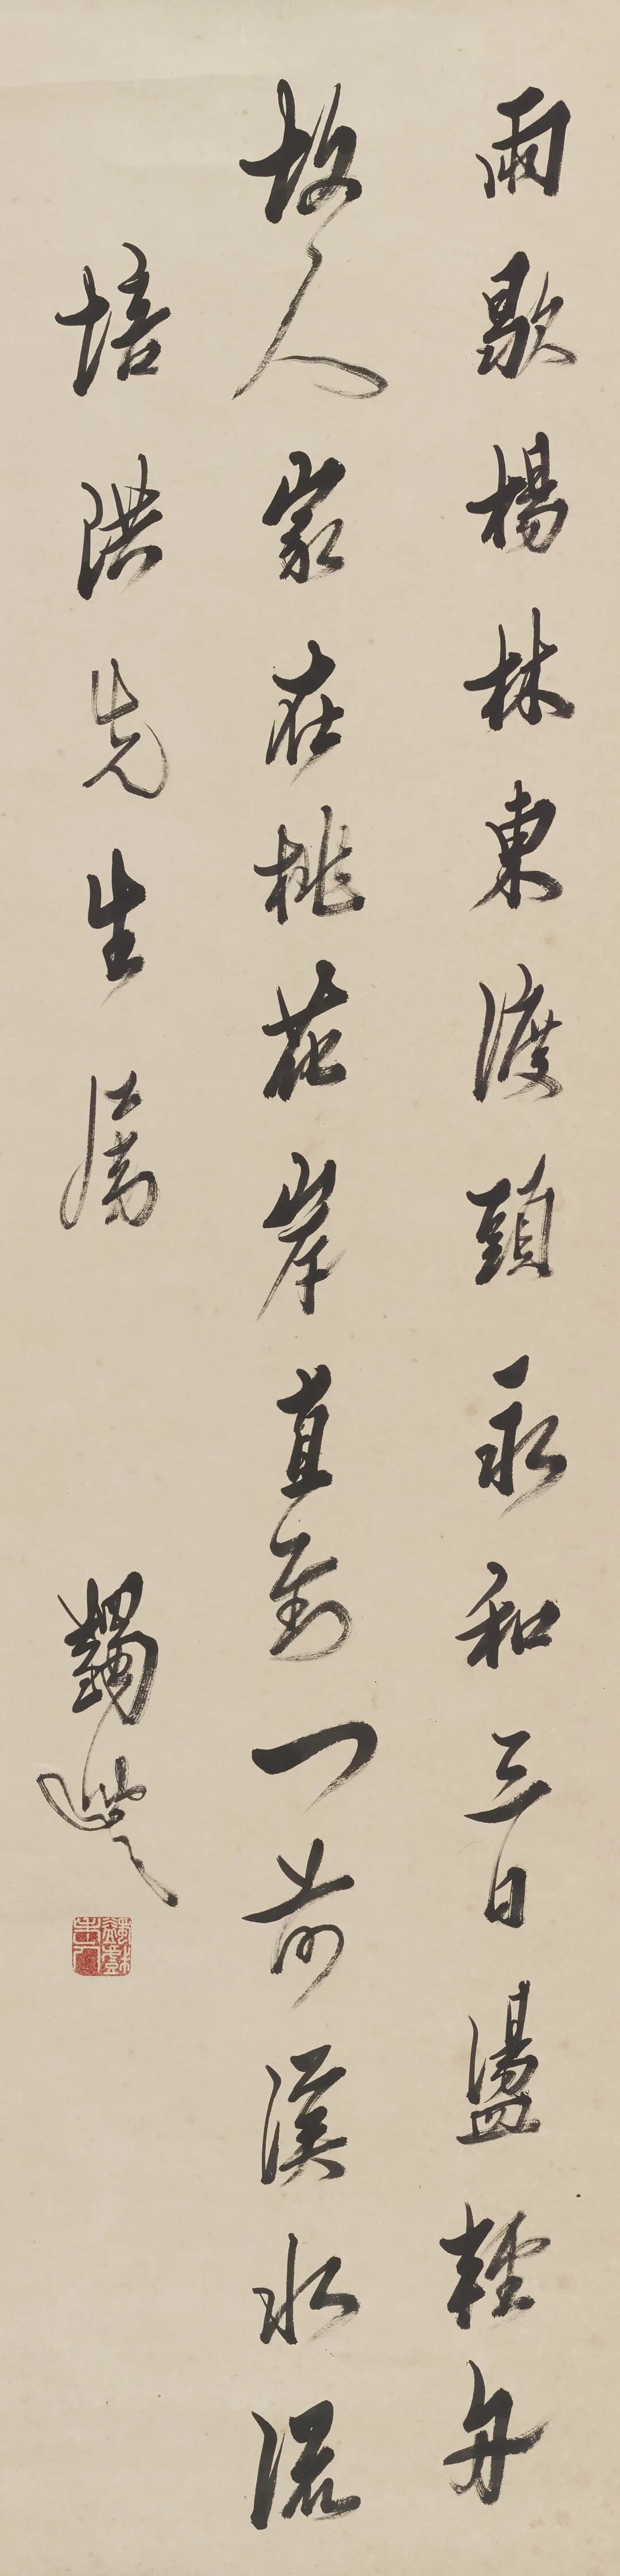 雨歇楊林東渡頭永和三日盪輕舟
故人家在桃花岸直到門前溪水流
培先生屬
蠲叟
蠲戲老人